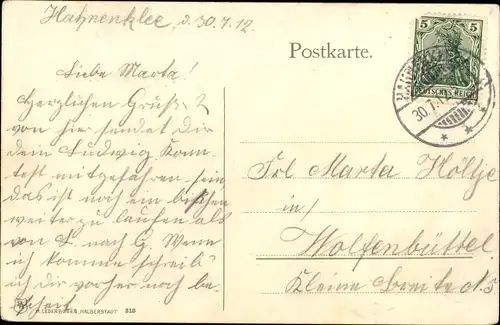 Hahnenklee, d. 30.7.12.
Postkarte.
5 5
DEUTSCHES REICH
HAHNENKLEE
30.7.12
Liebe Marta!
Herzlichen Gruß
von hier sendet Dir
Dein Ludwig Konn-
test mitgefahren sein
das ist noch ein bischen
weiter zu laufen als
von L. nach G. Wenn
ich komme schreib'
ich Dir vorher noch be-
scheit
Frl Marta Höltje
in/
Wolfenbüttel
Kleine Breite N. 5
H. LEDERBOGEN, HALBERSTADT 318